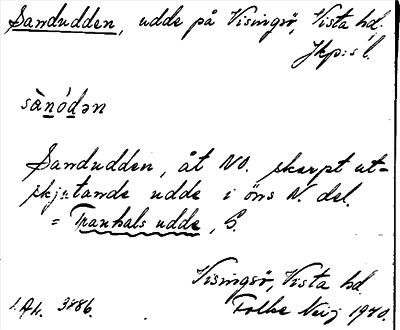 Sandudden, udde på Visingsö, Vista hd.
Jkp:s l.
sànódən
Sandudden, åt NO. skarpt ut-
skjutande udde i öns N. del.
= Tranhals udde,
Visingsö, Vista hd
3886. Folke 1940.